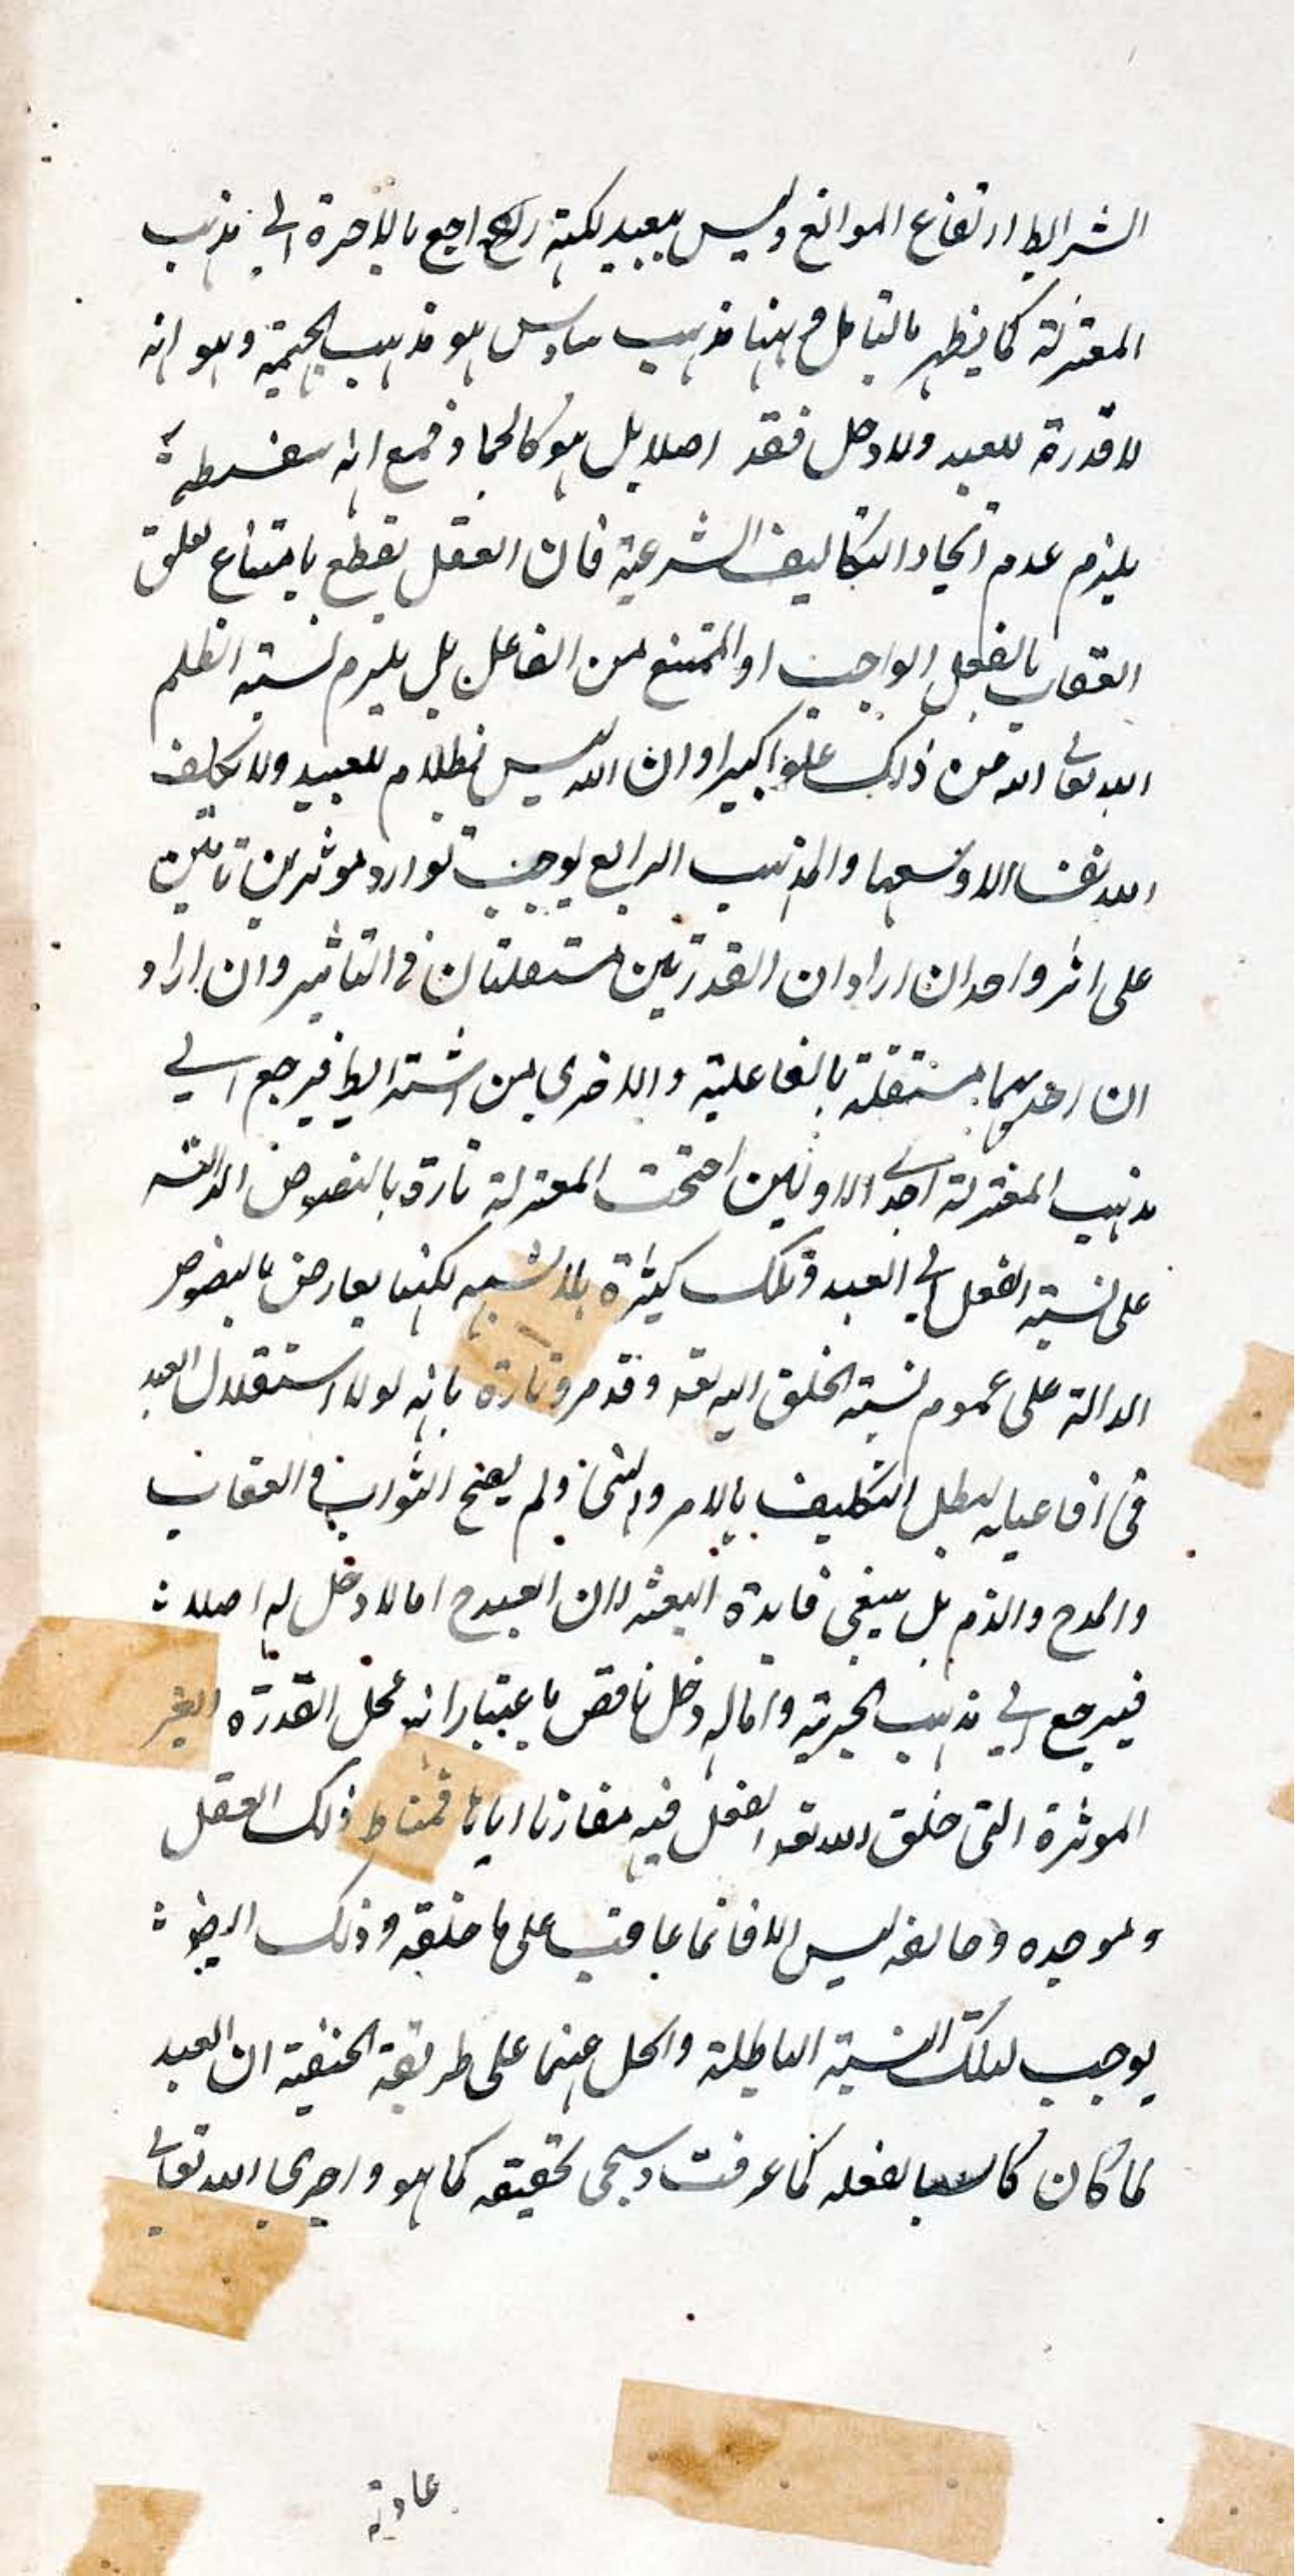 الشرايط ارتفاع الموانع وليس ببعيد لكنه راجع بالاخرة الى مذهب
المعتزلة كما يظهر بالتامل وههنا مذهب سادس هو مذهب الجهمية وهو انه
لا قدرة للعبد ولا دخل فقد اصلا بل هو كالجماد فمع انه سفسطة
يلزم عدم ايجاد التكاليف الشرعية فان العقل يقطع بامتناع تعلق
العقاب بالفعل الواجب او الممتنع من الفاعل بل يلزم نسبة الظلم
الله تعالى الله من ذلك علوا كبيرا وان الله ليس بظلام للعبيد ولا يكلف
الله نفسا الا وسعها والمذهب الرابع يوجب توارد موثرين تامين
على اثر واحد ان اراد ان القدرتين مستقلتان فى التاثير وان اراد
ان احديهما مستقلة بالفاعلية والاخرى من الشرايط فيرجع الى
مذهب المعتزلة احدى الاولين احتجت المعتزلة تارة بالنصوص الدالة
على نسبة الفعل الى العبد وتلك كثيرة بلا شبهه لكنها يعارض بالنصوص
الدالة على عموم نسبة الخلق اليه تعه وقد مر وتارة بانه لولا استقلال العبد
فى افاعيله لبطل التكليف بالامر والنهى ولم يصح الثواب و العقاب
والمدح والذم بل ينبغى فايدة البعثه لان العبد ح اما لا دخل له اصلا
فيرجع الى مذهب الجبرية واما له دخل ناقص باعتبار انه محل القدرة الغير
الموثرة التى خلق الله تعه الفعل فيه مقارنا اياها فمناط ذلك العقل
وموجده وخالقه ليس الا فانما عاقب على ما خلقه وذلك ايضا
يوجب لتلك النسبة الباطلة والحل عنهما على طريقة الحنفية ان العبد
لما كان كاسبا لفعله كما عرفت وسيجى تحقيقه كما هو واجرى الله تعالى
عادته